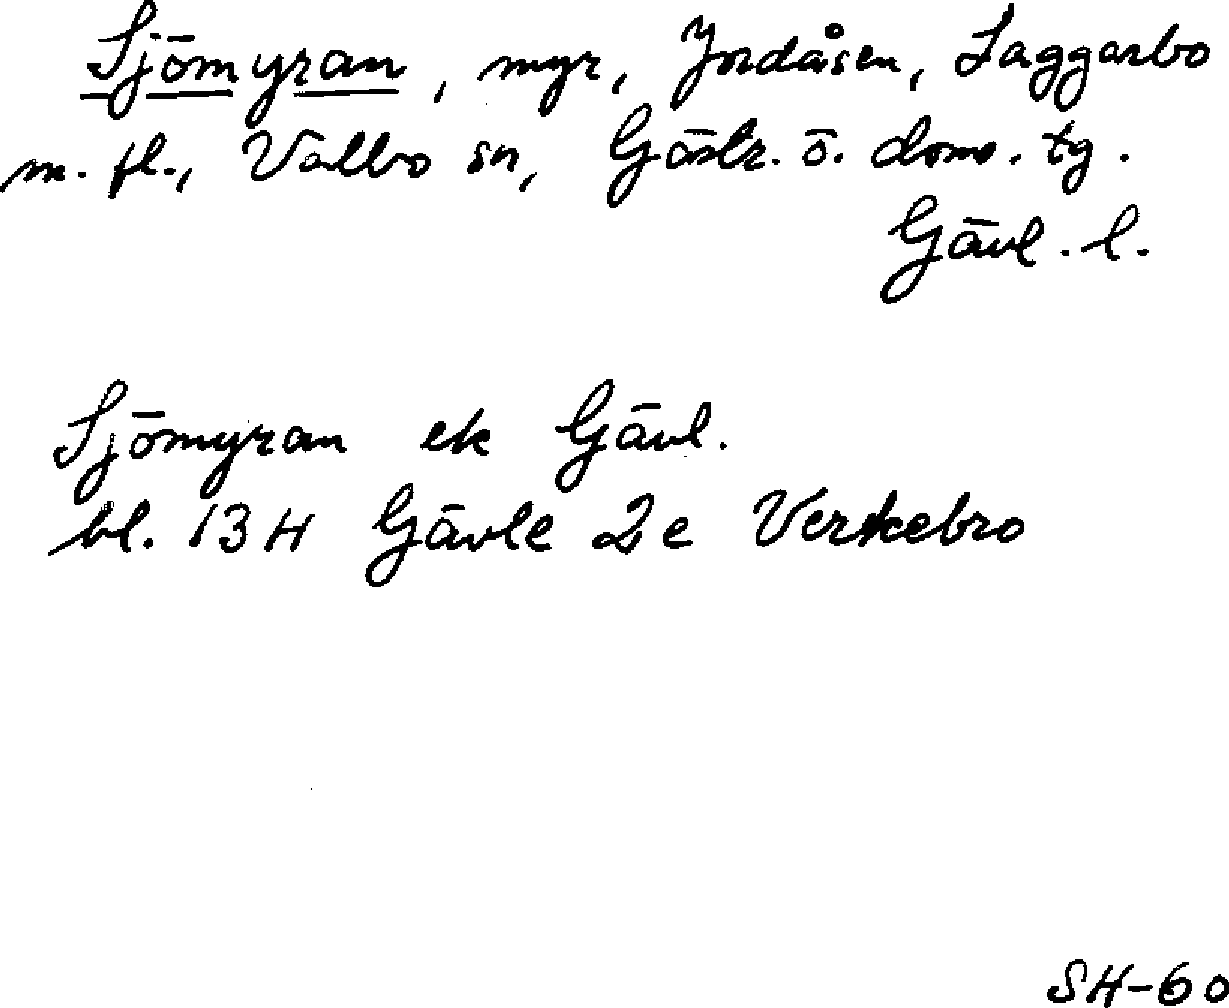 Sjömyran, myr, Jordåsen, Laggarbo
m. fl., Valbo sn, Gästr. ö. doms. tg.
Gävl. l.
Sjömyran ek Gävl.
bl. 13H Gävle 2e Verkebro
SH-60